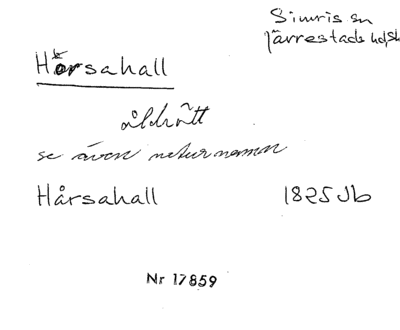 Simris sn
Järrestads hd, Sk
Hårsahall
åldrätt
se även naturnamn
Hårsahall 1825 Jb
Nr 17859